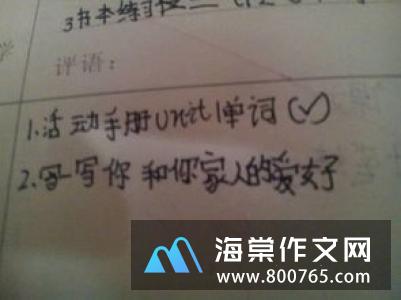 3书本练习
学
评语：
1.活动手册Unit1单词(✓)
2.写一写你和你家人的爱好
海棠作文网
www.800765.com